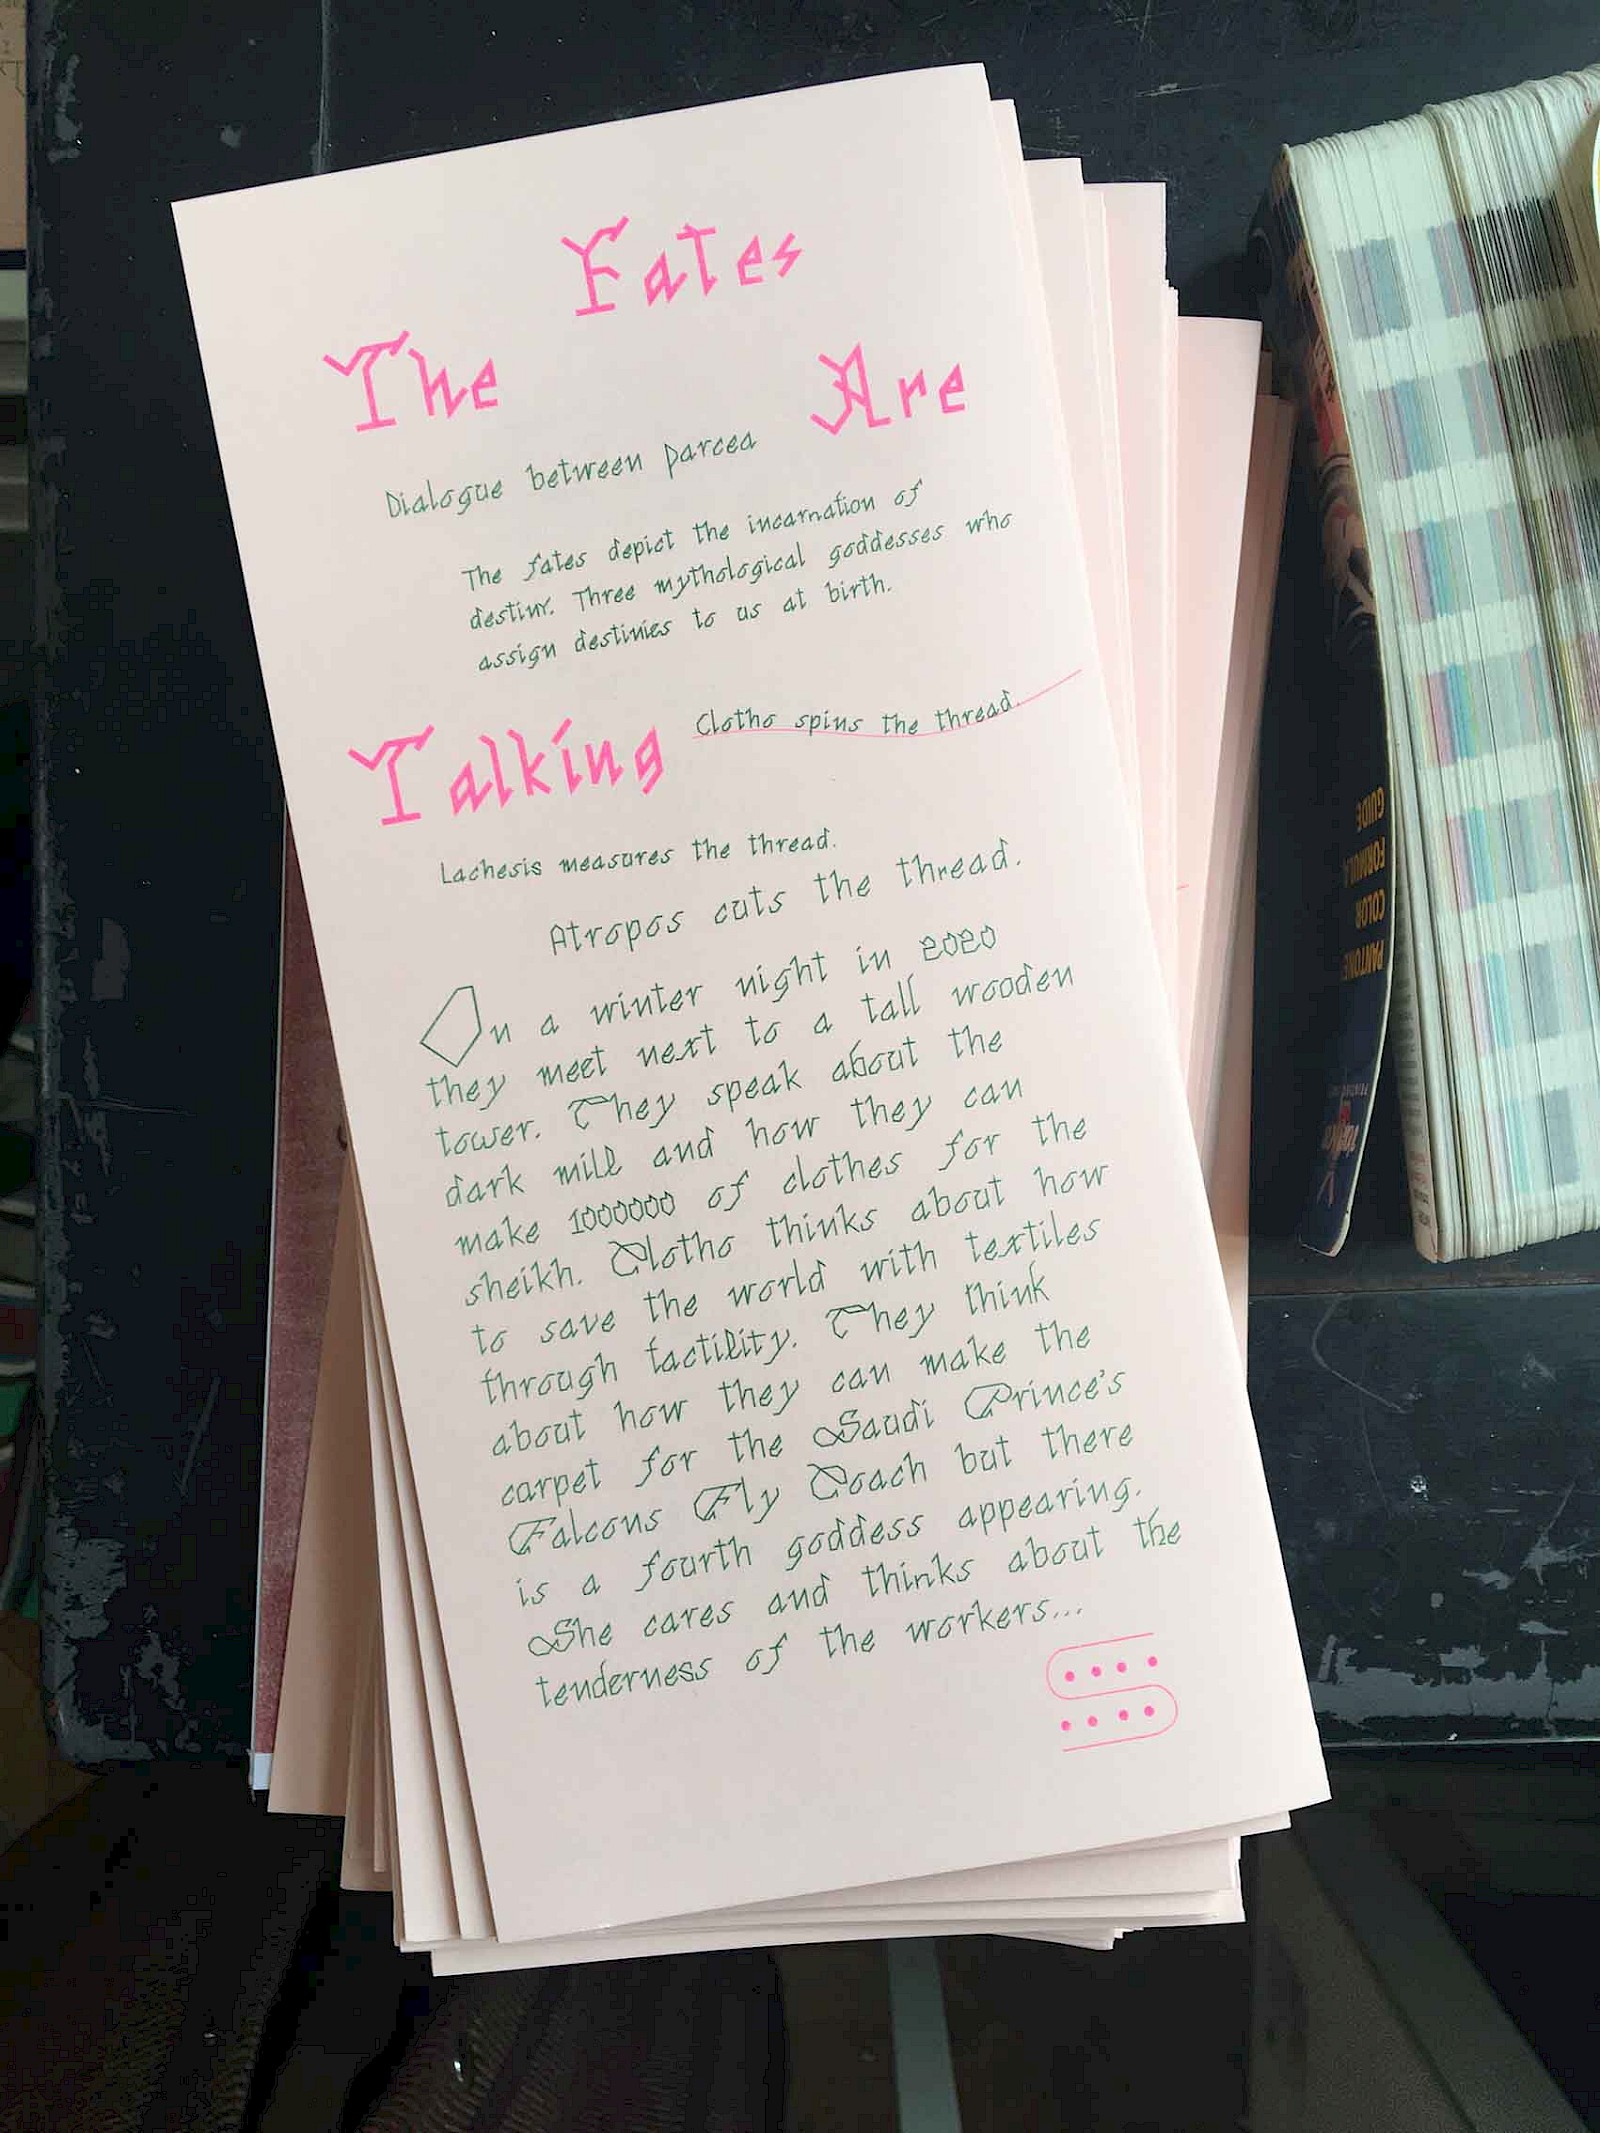 The Fates Are
Dialogue between parcea
The fates depict the incarnation of
destiny. Three mythological goddesses who
assign destinies to us at birth.
Talking
Clotho spins the thread.
Lachesis measures the thread.
Atropos cuts the thread.
On a winter night in 2020
they meet next to a tall wooden
tower. They speak about the
dark mill and how they can
make 1000000 of clothes for the
sheikh. Clotho thinks about how
to save the world with textiles
through tactility. They think
about how they can make the
carpet for the Saudi Prince's
Falcons Fly Coach but there
is a fourth goddess appearing.
She cares and thinks about the
tenderness of the workers...
PANTONE
COLOR
FORMULA
GUIDE